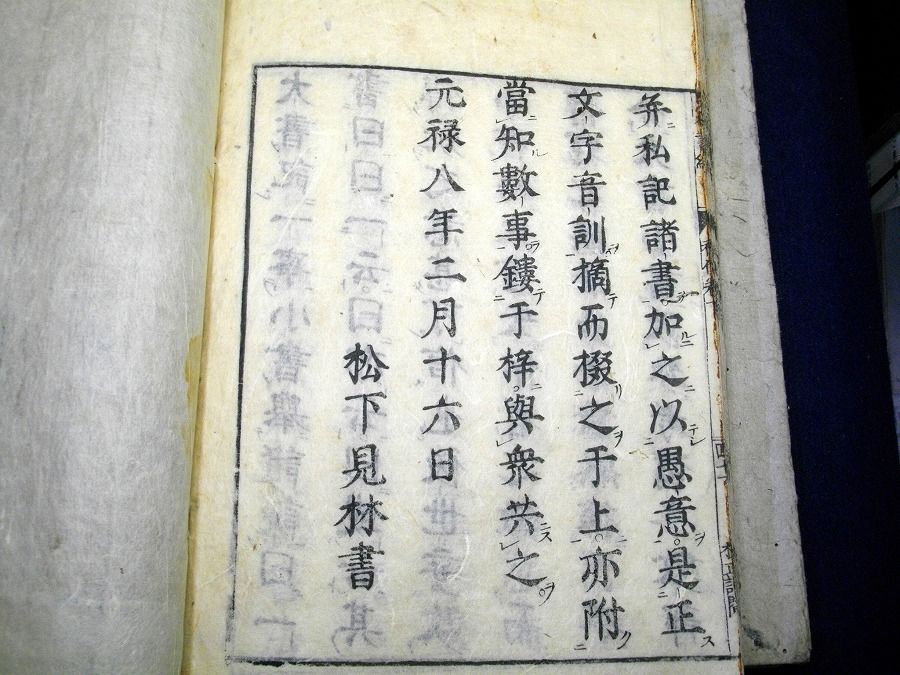 弁私記諸書加之以愚意是正
文字音訓摘而掇之于上亦附
當知數事鏤于梓與衆共之
元禄八年二月十六日
松下見林書